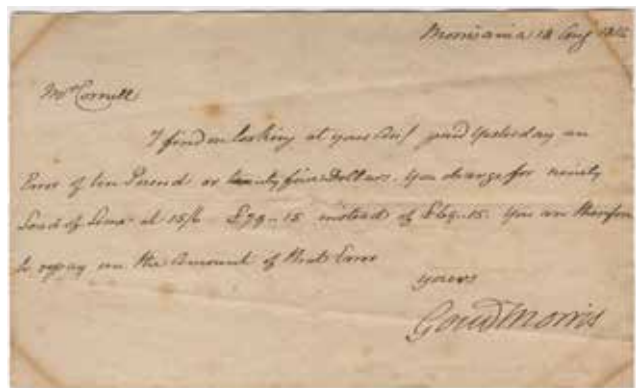 Morrisania 18 Aug
Mr Cornell
I find on looking at your Bill paid yesterday an
Error of ten Pound or twenty five Dollars. you charge for ninety
Load of Lime at 15/6 £79..15 instead of £69..15. You are therefore
to repay me the Amount of that Error
yours
Gouv Morris